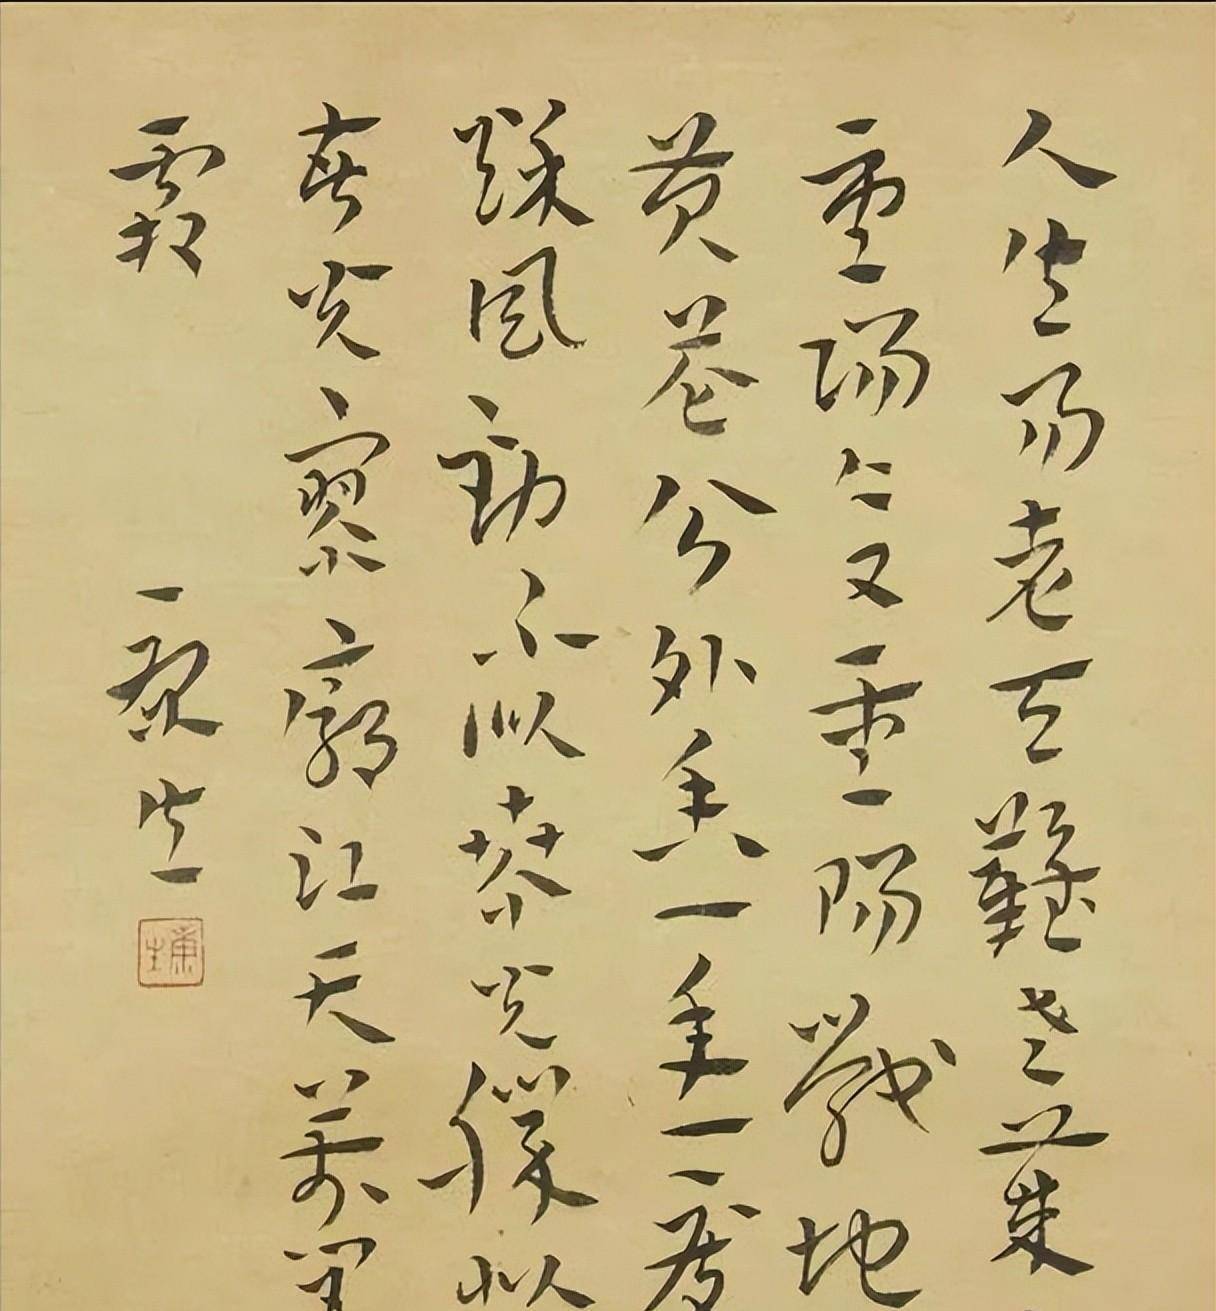 人生易老天難老歲
重陽今又重陽戰地
黄花分外香一年一度
秋風勁不似春光勝似
春光寥廓江天萬里
霜
康生
康生